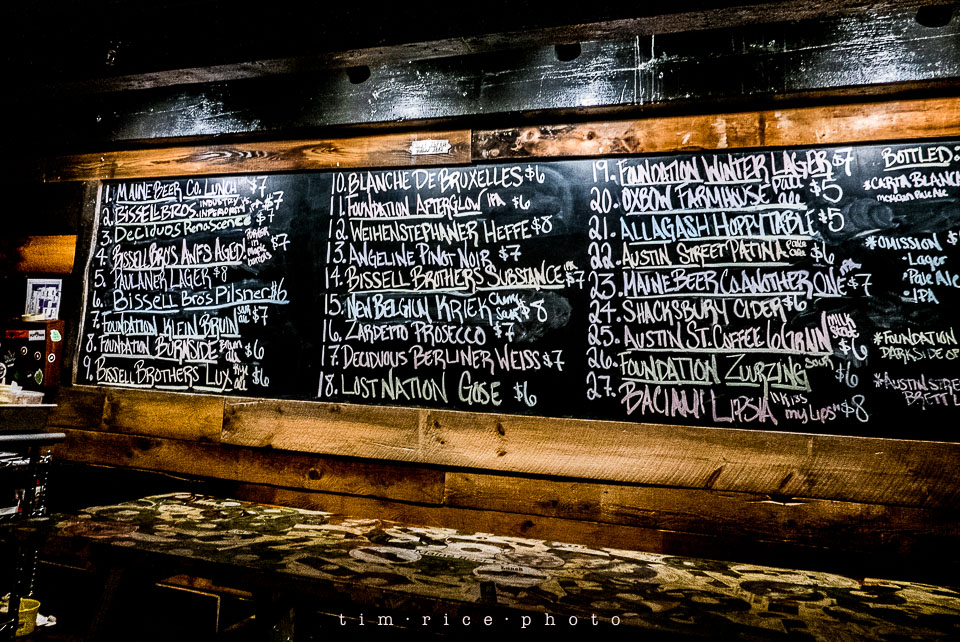 1. MAINE BEER CO. LUNCH $7
2. BISSELL BROS. INDUSTRY $7
3. DECIDUOUS $7
4. BISSELL BROS ANF'S AGED PORTER $7
5. PAULANER LAGER $8
6. BISSELL BROS PILSNER $6
7. FOUNDATION KLEIN BRUIN $7
8. FOUNDATION BURNSIDE BROWN ALE $6
9. BISSELL BROTHERS LUX RYE ALE $6
10. BLANCHE DE BRUXELLES $6
11. FOUNDATION AFTERGLOW IPA $6
12. WEIHENSTEPHANER HEFFE $8
13. ANGELINE PINOT NOIR $7
14. BISSELL BROTHERS SUBSTANCE IPA $7
15. NEW BELGIUM KRIEK CHERRY SOUR $8
16. ZARDETTO PROSECCO $7
17. DECIDUOUS BERLINER WEISS $7
18. LOST NATION GOSE $6
19. FOUNDATION WINTER LAGER $7
20. OXBOW FARMHOUSE PALE ALE $5
21. ALLAGASH HOPPY TABLE $5
22. AUSTIN STREET PATINA PALE ALE $6
23. MAINE BEER CO. ANOTHER ONE IPA $7
24. SHACKSBURY CIDER $6
25. AUSTIN ST. COFFEE 6 GRAIN MILK STOUT $6
26. FOUNDATION ZUURZING SOUR $6
27. BACIAMI LIPSIA "KISS my LIPS" $8
BOTTLED
*CARTA BLANCA
MEXICAN PALE ALE
*OMISSION
• Lager
• Pale Ale
• IPA
*FOUNDATION
DARKSIDE OF
*AUSTIN STREET
BRETT
tim·rice·photo